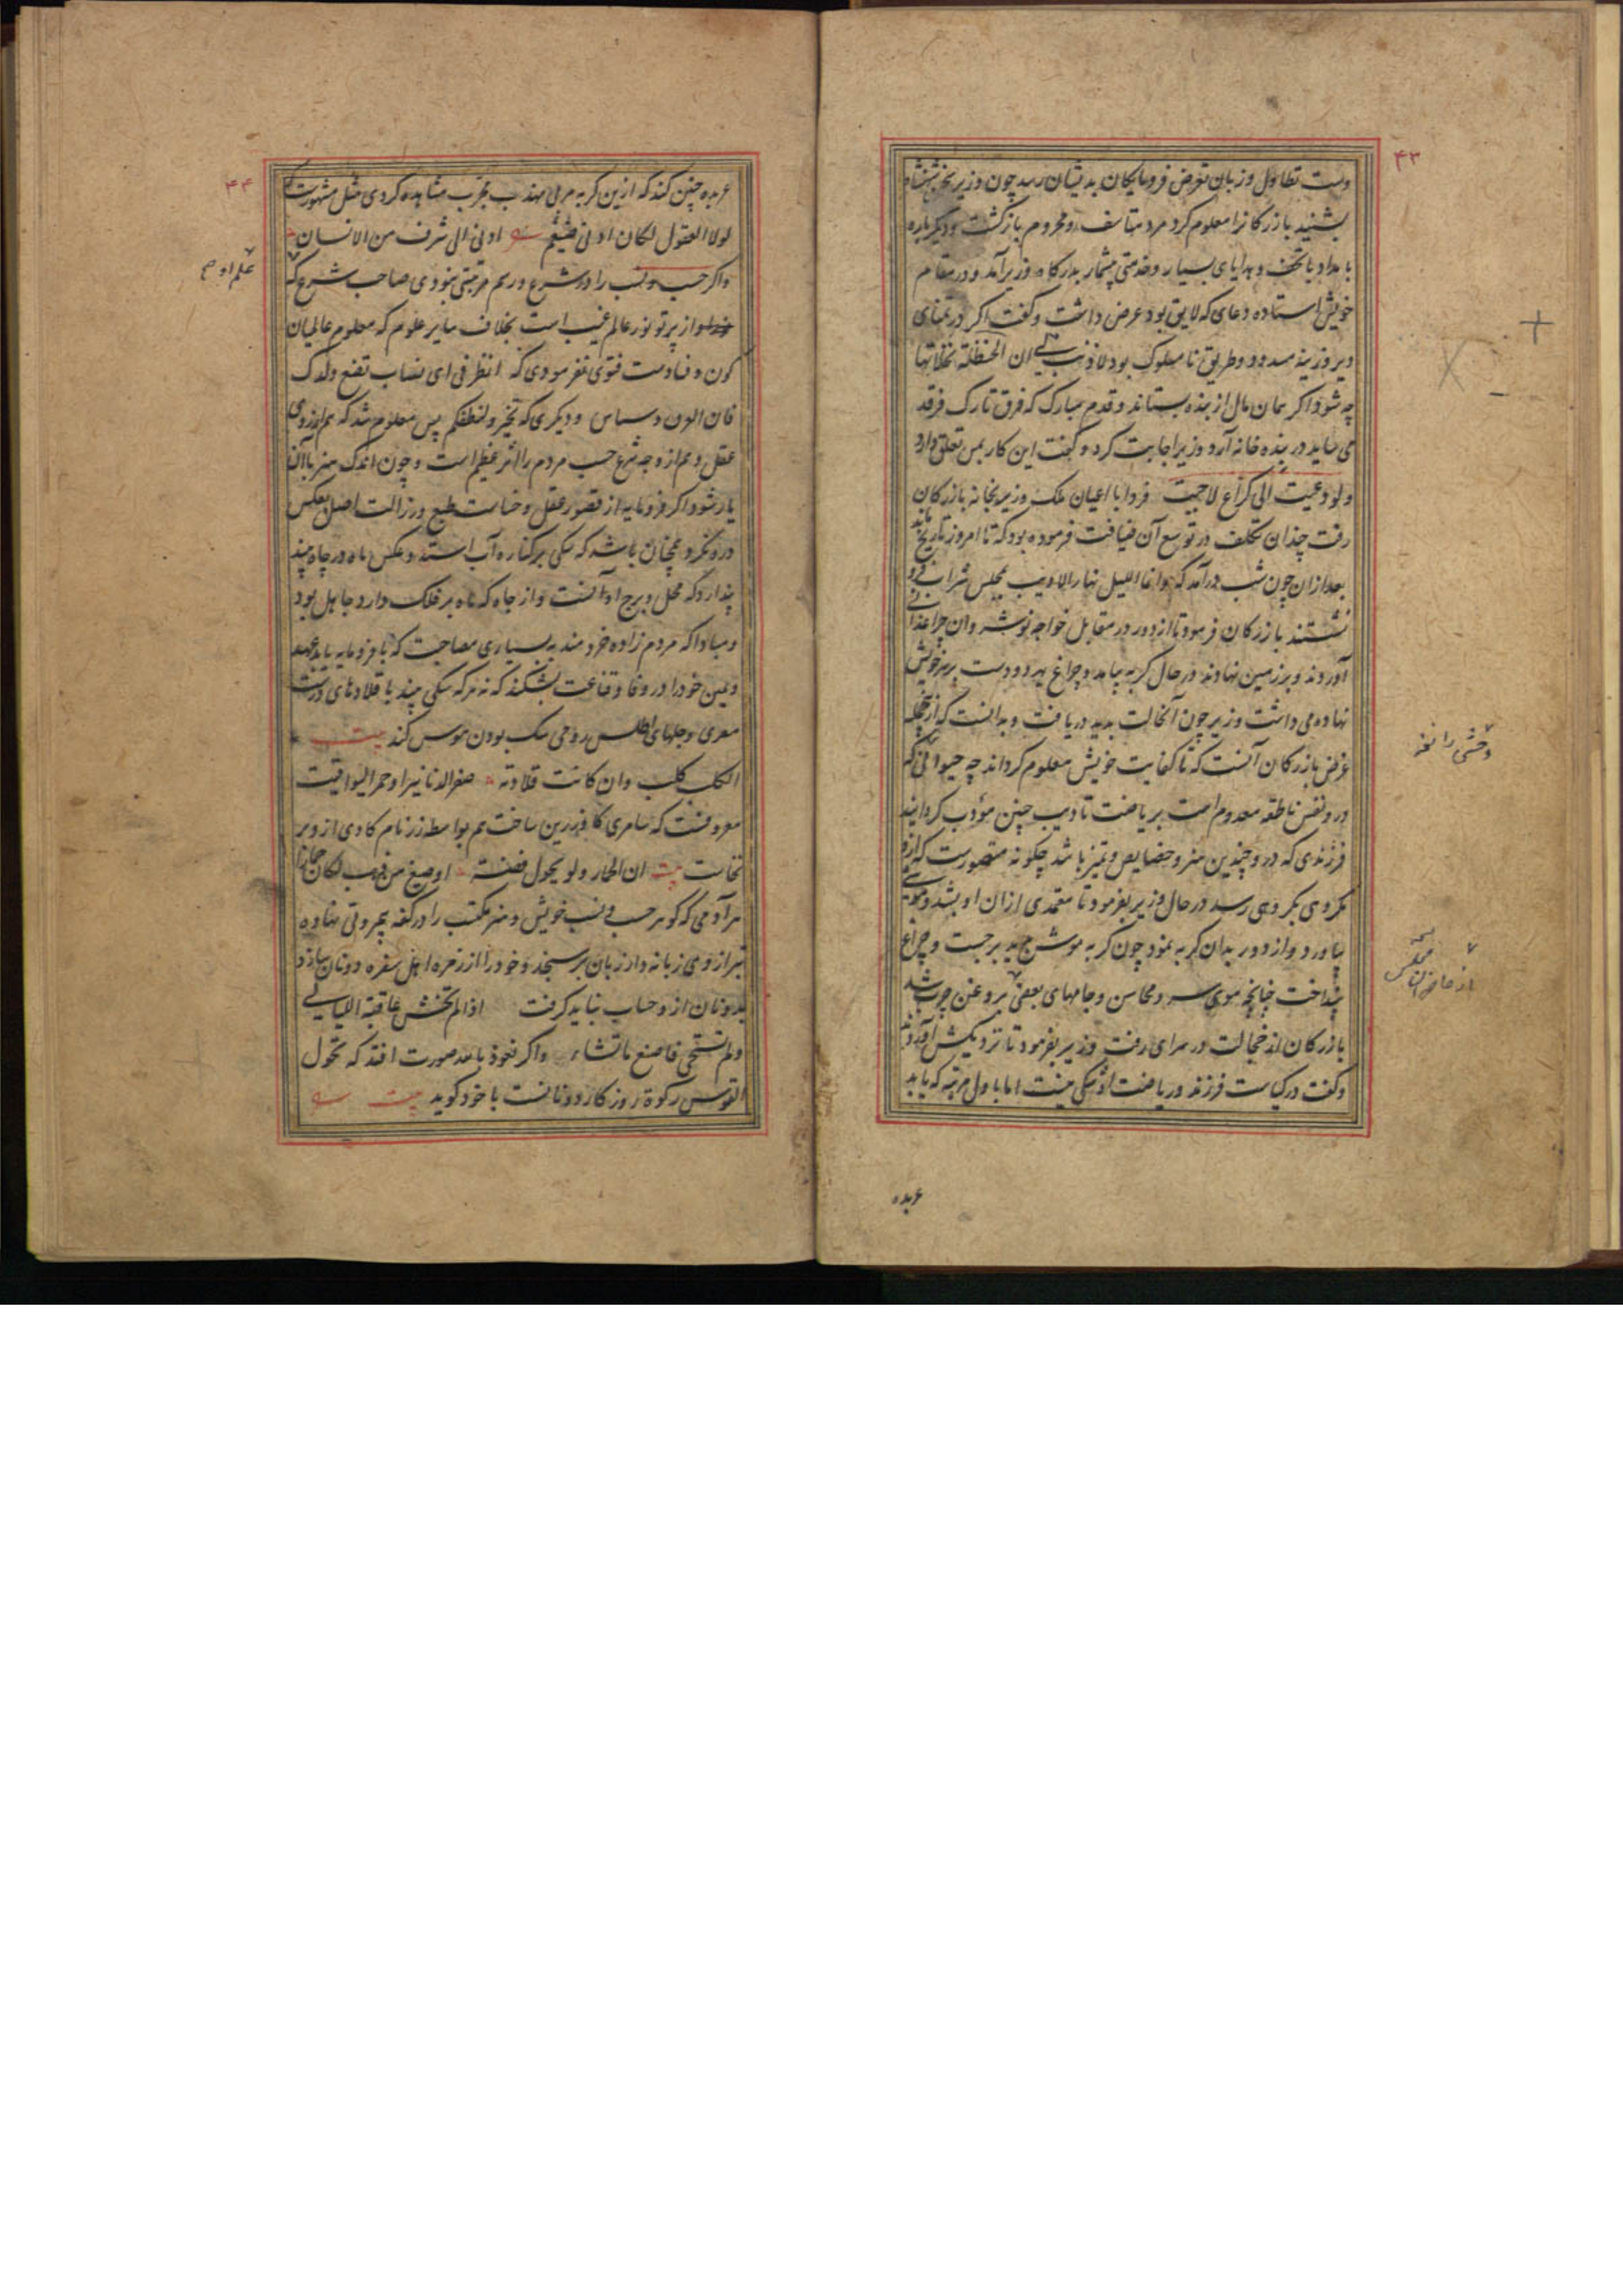 ۴۳
دست تطاول و زبان تعرض فرومایکان بدیشان رسد چون وزیر
بشنید بازرکانرا معلوم کرد مرد متاسف و محروم بازکشت و دیکرباره
بامداد با تحف و هدایای بسیار و خدمتی بیشمار بدرکاه وزیر آمد و در مقام
خویش استاده دعای که لایق بود عرض داشت و کفت اکر در تمنای
دیروزینه مسدود و طریق نامسلوک بود لا ذنب لی ان الحنظلة نخلاتها
چه شود اکر همان مال از بنده بستاند و قدم مبارک که فرق تارک فرقد
می ساید در بنده خانه آرد وزیر اجابت کرد و کفت این کار بمن تعلق دارد
ولو دعیت الی کراع لاجبت فردا با اعیان ملک وزیر بخانه بازرکان
رفت چندان تکلف در توسع آن ضیافت فرموده بود که تا امروز تاریخ
بعد از ان چون شب درآمد که وانما اللیل نهار الادیب بمجلس شراب فرو
نشستند بازرکان فرمود تا از دور در مقابل خواجه نوشه وان چراغدانی
آوردند و بر زمین نهادند در حال کربه بیامد و چراغ بهر دو دست بر سر خویش
نهاده می داشت وزیر چون آنحالت بدید دریافت و بدانست که از
غرض بازرکان آنست که تا کفایت خویش معلوم کرداند چه حیوانی که
درو نفس ناطقه معدوم است بریاضت تادیب چنین مؤدب کردانید
فرزندی که درو چندین هنر و خصایص و تمیز باشد چکونه متصورست که ازو
مکروهی بکروهی رسد در حال وزیر بفرمود تا معتمدی از ان او بشد و موشی
بیاورد و از دور بدان کربه نمود چون کربه موش بدید برجست و چراغ
بینداخت چنانچه موی سر و محاسن و جامهای بعضی بروغن چرب شد
بازرکان از خجالت در سرای رفت وزیر بفرمود تا نزدیکش آوردند
وکفت در کیاست فرزند و ریاضت او شکی نیست اما باول مرتبه که باید
وحشی را
از حاضران مجلس
عربده
۴۴
عربده چنین کند که ازین کربه مربی مهذب مجرب مشاهده کردی مثل مشهورست
لولا العقول لکان ادنی ضیغم ادنی الی شرف من الانسان
واکر حسب و نسب را در شرع و رسم مرتبتی نبودی صاحب شرع که
از پرتو نور عالم غیب است بخلاف سایر علوم که معلوم عالمیان
کون و فسادست فتوی نفرمودی که انظر فی ای نصاب تضع ولدک
فان العرق دساس و دیکری که تخیروا لنطفکم پس معلوم شد که هم از روی
عقل و هم از وجه شرع حسب مردم را اثر عظیم است و چون اندک هنر با آن
یار شود اکر فرومایه از قصور عقل و خساست طبع و رزالت اصل بعکس
درو نکرد همچنان باشد که سکی بر کناره آب استد و عکس ماه در چاه بیند
پندارد که محل و برج او آنست و از جاه که ماه بر فلک دارد جاهل بود
و مبادا که مردم زاده خردمند به بسیاری مصاحبت که با فرومایه
و یمین خود را در وفا و قناعت بشکند که نه هر که سکی بیند با قلادهای
معری و جلهای اطلس رومی سک بودن هوس کند بیت
الکلب کلب وان کانت قلادته صفر الدنانیر او حمر الیواقیت
معروفست که سامری کاو زرین ساخت هم بواسطه زر نام کاوی ازو بر
نخاست بیت ان الحمار ولو یحول فضة او صیغ من ذهب لکان حمارا
هر آدمی که کوهر حسب و نسب خویش و هنر مکتسب را در کفه بیمروتی نهاده
بترازوی زبانه دار زبان برسنجد و خود را از زمره اهل سفره دونان سازد
بدو نان ازو حساب نباید کرفت اذا لم تخش عاقبة اللیالی
ولم تستحی فاصنع ما تشاء واکر نعوذ بالله صورت افتد که تحول
القوس رکوة روزکار دونانست با خود کوید بیت
علم او